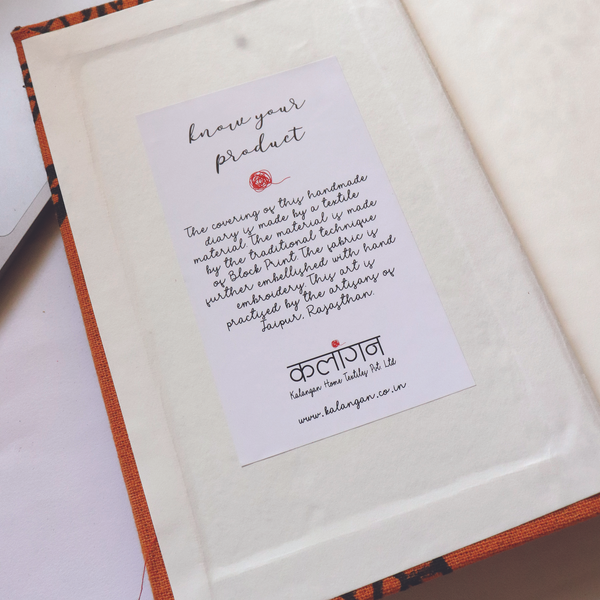 know your
product
The covering of this handmade
diary is made by a textile
material. The material is made
by the traditional technique
of Block Print. The fabric is
further embellished with hand
embroidery. This art is
practised by the artisans of
Jaipur, Rajasthan.
कलांगन
Kalangan Home Textiles Pvt Ltd
www.kalangan.co.in